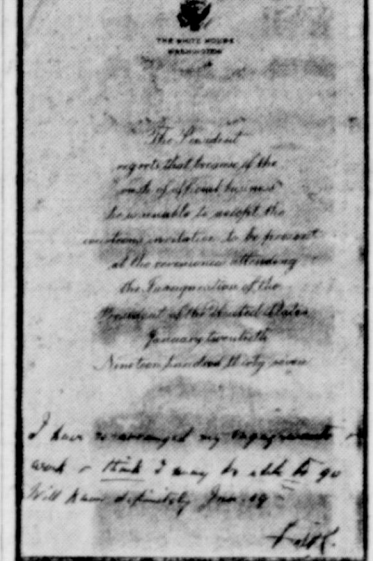 THE WHITE HOUSE
WASHINGTON
The President
regrets that because of the
rush of official business
he is unable to accept the
courteous invitation to be present
at the ceremonies attending
the Inauguration of the
President of the United States
January twentieth
Nineteen hundred thirty seven
I have rearranged my engagements
work & think I may be able to go
Will know definitely Jan. 19
F.D.R.